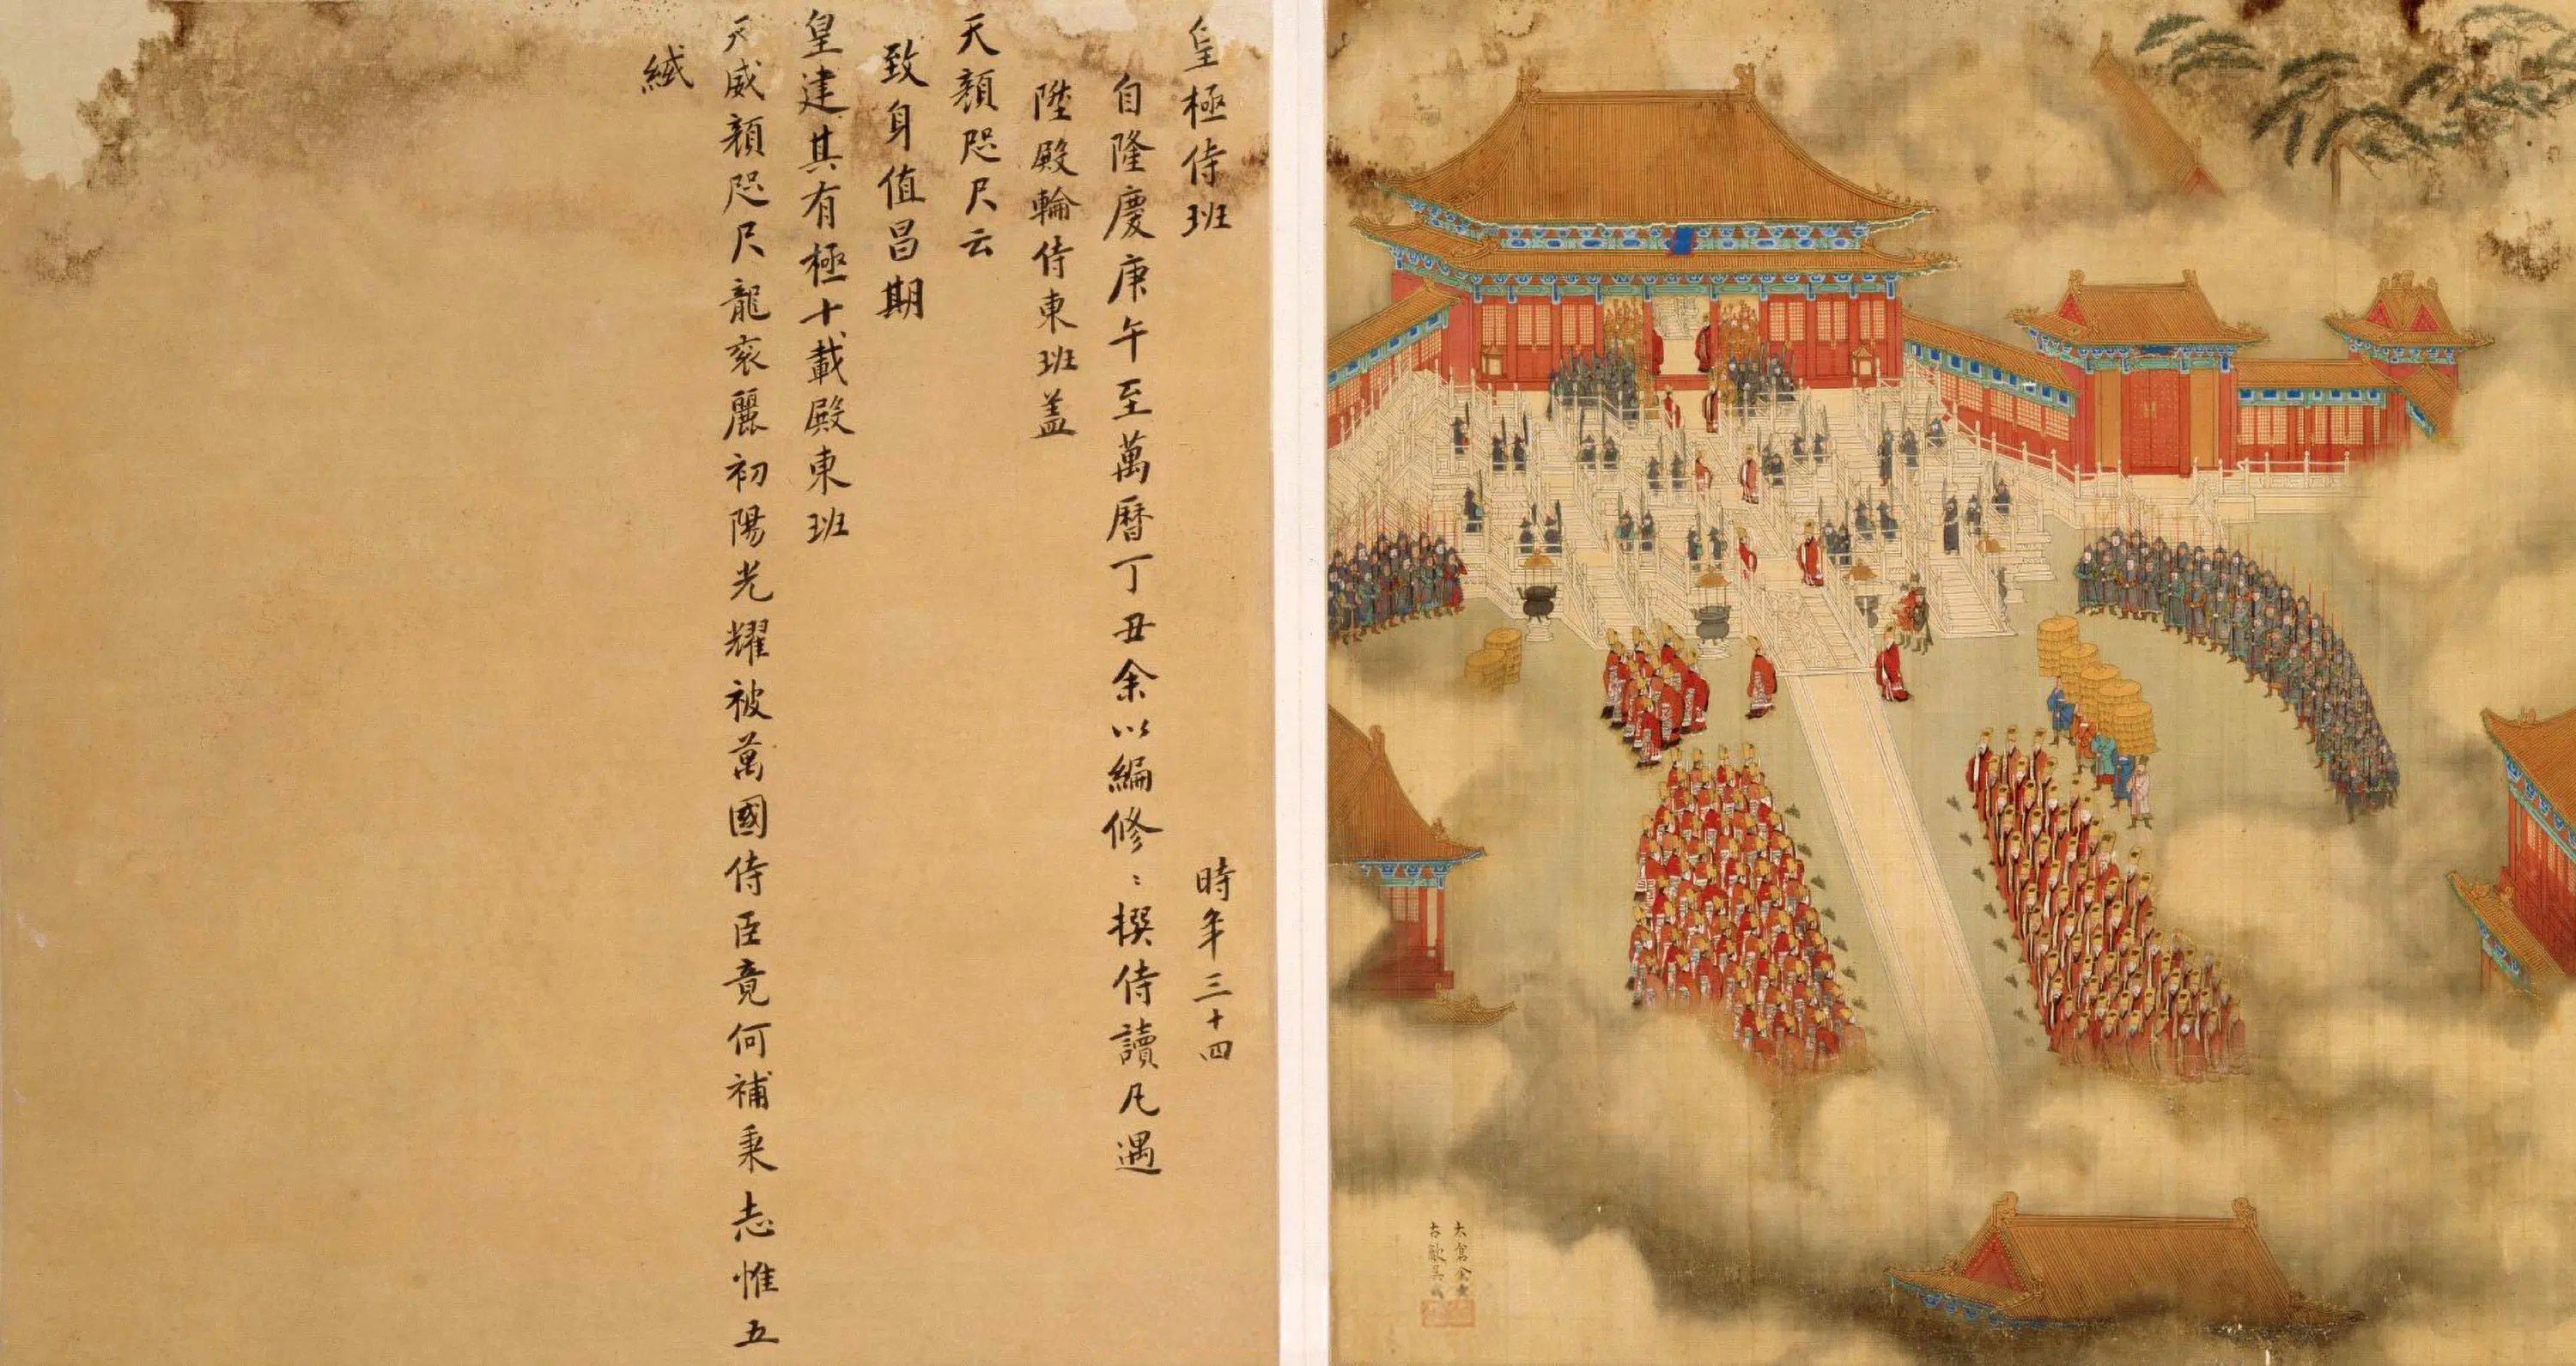 皇極侍班 時年三十四
自隆慶庚午至萬曆丁丑余以編修〻撰侍讀凡遇
陞殿輪侍東班蓋
天顏咫尺云
致身值昌期
皇建其有極十載殿東班
天威顏咫尺龍袞麗初陽光耀被萬國侍臣竟何補秉志惟五
緎
太倉余士
古歙吳